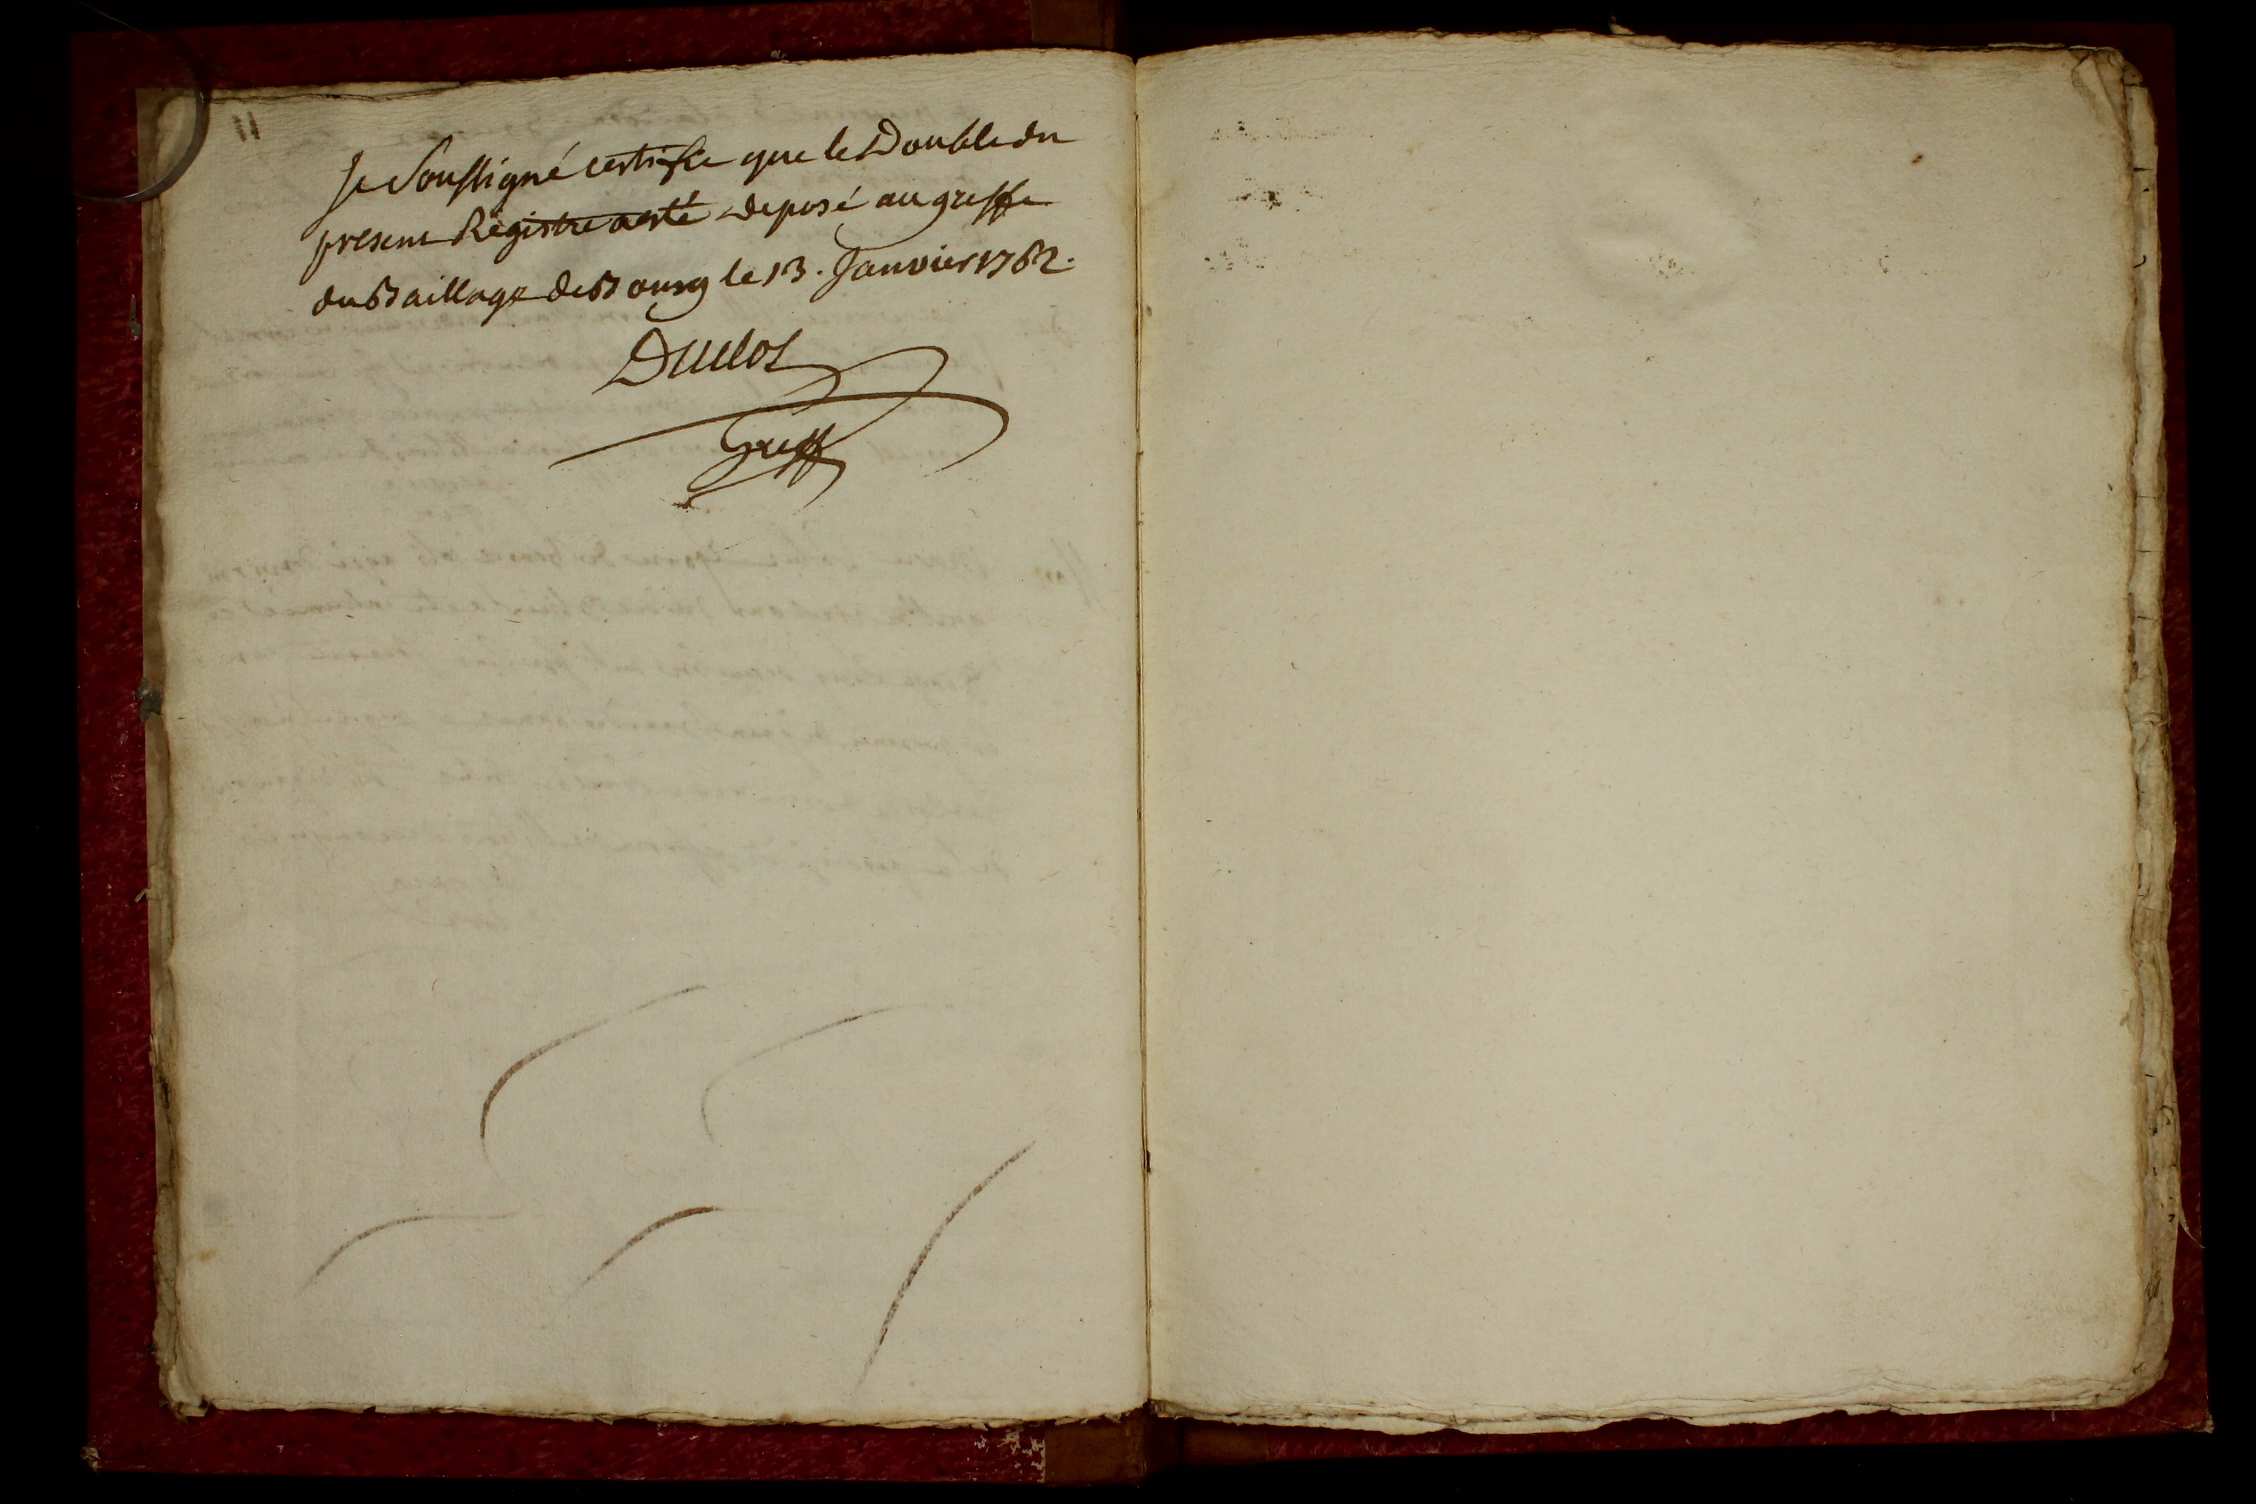 Je Soussigné certifie que le Double du
present Registre a esté deposé au greffe
du Baillage de Bourg le 13. Janvier 1762.
Duclos
Greff